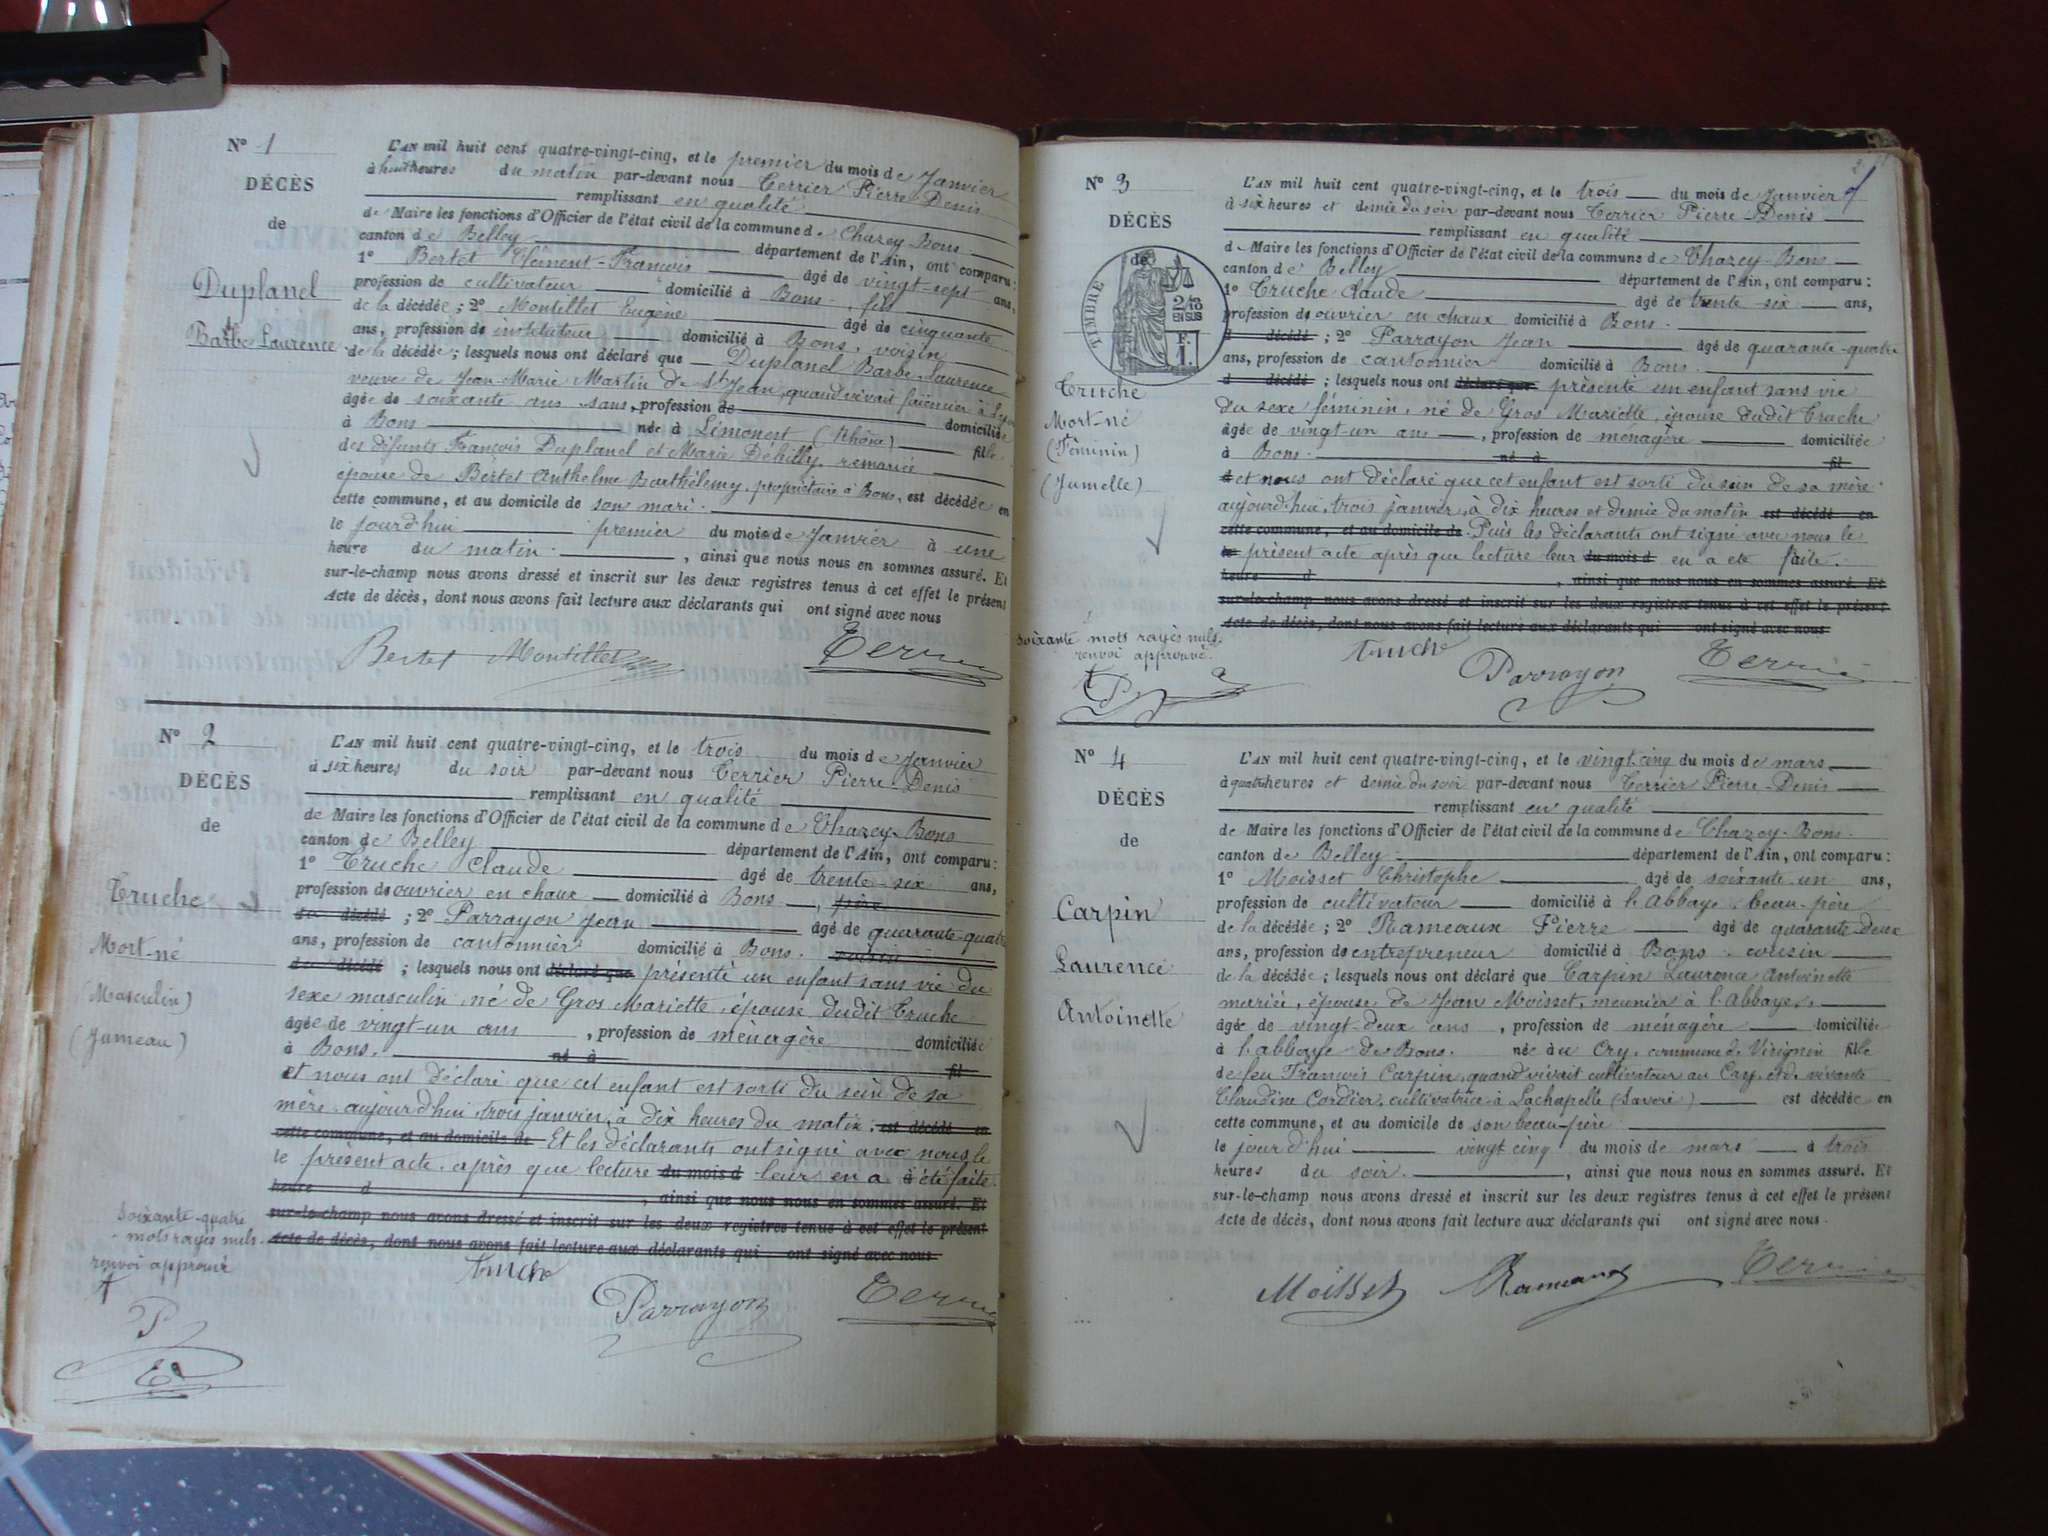 N° 1
DÉCÈS
de
Duplanel
Barbe Laurence
L'AN mil huit cent quatre-vingt-cinq, et le premier du mois de Janvier
à huit heures du matin par-devant nous Terrier Pierre-Denis
remplissant en qualité
de Maire les fonctions d'Officier de l'état civil de la commune de Chazey-Bons
canton de Belley département de l'Ain, ont comparu :
1° Bertet Clément-François âgé de vingt-sept ans,
profession de cultivateur domicilié à Bons, fils
de la décédée ; 2° Montillet Eugène âgé de cinquante
ans, profession de instituteur domicilié à Bons, voisin
de la décédée ; lesquels nous ont déclaré que Duplanel Barbe Laurence
veuve de Jean-Marie Martin de St Jean, quand vivait faïencier à Lyon
âgée de soixante ans sans, profession de domiciliée
à Bons née à Limonest (Rhône) fille
des défunts François Duplanel et Marie Dehilly, remariée
épouse de Bertet Anthelme Barthélemy, propriétaire à Bons, est décédée en
cette commune, et au domicile de son mari.
le jourd'hui premier du mois de Janvier à une
heure du matin. , ainsi que nous nous en sommes assuré. Et
sur-le-champ nous avons dressé et inscrit sur les deux registres tenus à cet effet le présent
Acte de décès, dont nous avons fait lecture aux déclarants qui ont signé avec nous
Bertet Montillet Terrier
N° 2
DÉCÈS
de
Truche
Mort-né
(Masculin)
(Jumeau)
L'AN mil huit cent quatre-vingt-cinq, et le trois du mois de Janvier
à six heures du soir par-devant nous Terrier Pierre-Denis
remplissant en qualité
de Maire les fonctions d'Officier de l'état civil de la commune de Chazey-Bons
canton de Belley département de l'Ain, ont comparu :
1° Truche Claude âgé de trente-six ans,
profession de ouvrier en chaux domicilié à Bons, père
du décédé ; 2° Parrayon Jean âgé de quarante-quatre
ans, profession de cantonnier domicilié à Bons. voisin
du décédé ; lesquels nous ont déclaré que présenté un enfant sans vie du
sexe masculin, né de Gros Mariette, épouse dudit Truche
âgée de vingt-un ans , profession de ménagère domiciliée
à Bons. né à fil
et nous ont déclaré que cet enfant est sorti du sein de sa
mère aujourd'hui, trois janvier, à dix heures du matin. est décédé en
cette commune, et au domicile de Et les déclarants ont signé avec nous le
le présent acte, après que lecture du mois d leur en a à été faite.
heure d , ainsi que nous nous en sommes assuré. Et
sur-le-champ nous avons dressé et inscrit sur les deux registres tenus à cet effet le présent
Acte de décès, dont nous avons fait lecture aux déclarants qui ont signé avec nous
Soixante-quatre
mots rayés nuls.
renvoi approuvé
Truche
Parrayon Terrier
N° 3
DÉCÈS
de
TIMBRE
2/10
EN SUS
F.
1.
Truche
Mort-né
(Féminin)
(Jumelle)
L'AN mil huit cent quatre-vingt-cinq, et le trois du mois de Janvier
à six heures et demie du soir par-devant nous Terrier Pierre-Denis
remplissant en qualité
de Maire les fonctions d'Officier de l'état civil de la commune de Chazey-Bons
canton de Belley département de l'Ain, ont comparu :
1° Truche Claude âgé de trente-six ans,
profession de ouvrier en chaux domicilié à Bons.
d décédé ; 2° Parrayon Jean âgé de quarante-quatre
ans, profession de cantonnier domicilié à Bons.
d décédé ; lesquels nous ont déclaré que présenté un enfant sans vie
du sexe féminin, né de Gros Mariette, épouse dudit Truche
âgée de vingt-un ans , profession de ménagère domiciliée
à Bons. né à fil
et nous ont déclaré que cet enfant est sorti du sein de sa mère
aujourd'hui, trois janvier, à dix heures et demie du matin est décédé en
cette commune, et au domicile de. Puis les déclarants ont signé avec nous le
le présent acte après que lecture leur du mois d en a été faite.
heure d , ainsi que nous nous en sommes assuré. Et
sur-le-champ nous avons dressé et inscrit sur les deux registres tenus à cet effet le présent
Acte de décès, dont nous avons fait lecture aux déclarants qui ont signé avec nous
soixante mots rayés nuls.
renvoi approuvé.
Truche
Parrayon Terrier
N° 4
DÉCÈS
de
Carpin
Laurence
Antoinette
L'AN mil huit cent quatre-vingt-cinq, et le vingt-cinq du mois de mars
à quatre heures et demie du soir par-devant nous Terrier Pierre-Denis
remplissant en qualité
de Maire les fonctions d'Officier de l'état civil de la commune de Chazey-Bons.
canton de Belley département de l'Ain, ont comparu :
1° Moisset Christophe âgé de soixante-un ans,
profession de cultivateur domicilié à l'abbaye, beau-père
de la décédée ; 2° Rameaux Pierre âgé de quarante-deux
ans, profession de entrepreneur domicilié à Bons. cousin
de la décédée ; lesquels nous ont déclaré que Carpin Laurence Antoinette
mariée, épouse de Jean Moisset, meunier à l'Abbaye,
âgée de vingt-deux ans , profession de ménagère domiciliée
à l'abbaye de Bons. née au Cry, commune de Virignin fille
de feu François Carpin, quand vivait cultivateur au Cry, et de vivante
Claudine Cordier, cultivatrice à Lachapelle (Savoie) est décédée en
cette commune, et au domicile de son beau-père.
le jourd'hui vingt cinq du mois de mars à trois
heures du soir. , ainsi que nous nous en sommes assuré. Et
sur-le-champ nous avons dressé et inscrit sur les deux registres tenus à cet effet le présent
Acte de décès, dont nous avons fait lecture aux déclarants qui ont signé avec nous.
Moisset Rameaux Terrier